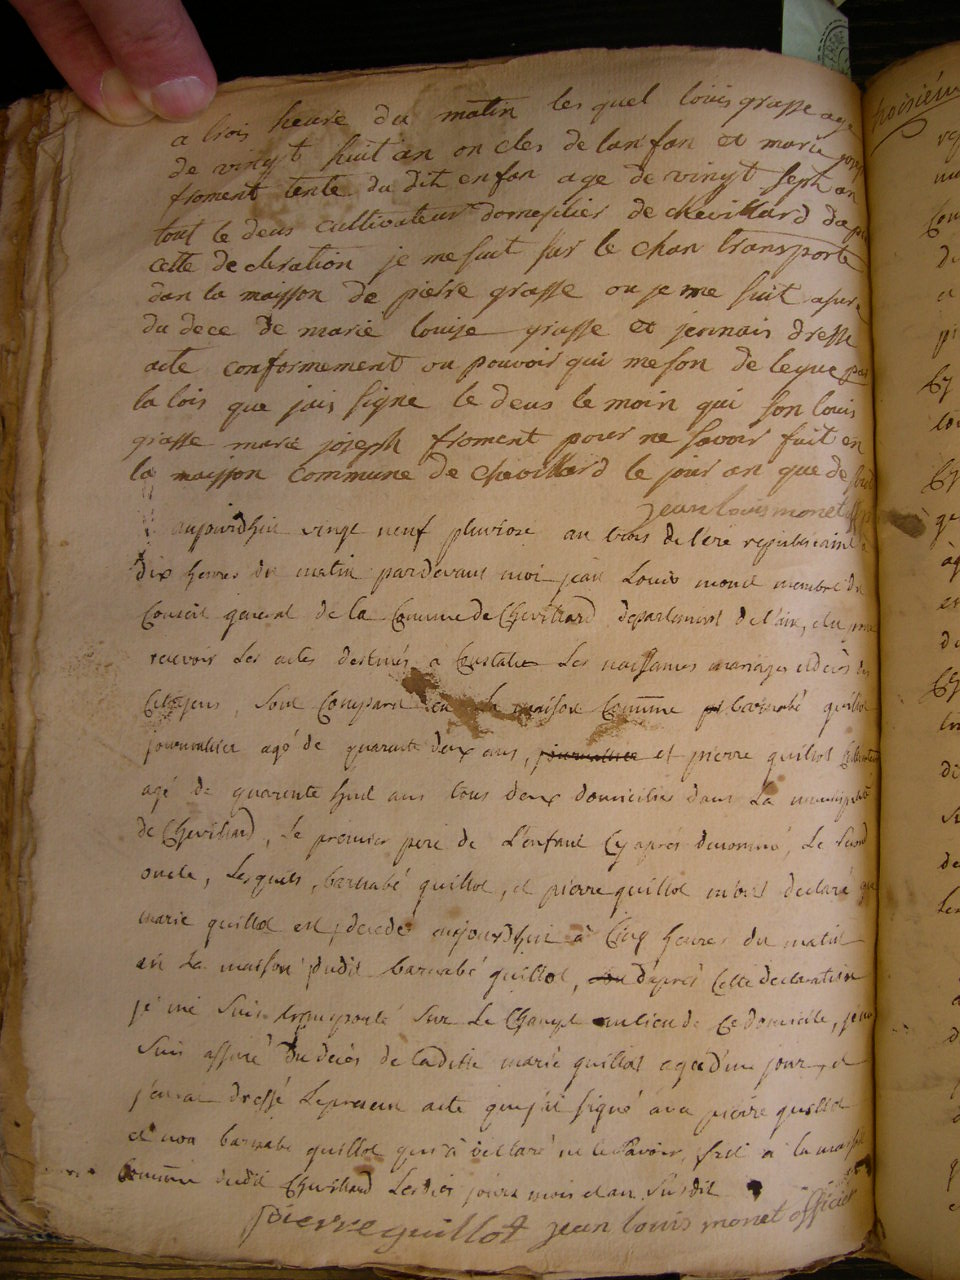 a trois heure du matin les quel louis grasse age
de vingt huit an on cles de lanfan et marie josep
froment tente du dit enfan age de vingt sept an
tout le deus cultivateur domesilier de chevillard dapre
cette declration je me suit sur le chan transporte
dan la maisson de pierre grasse ou je me suit asure
du dece de marie louise grasse et jennais dresse
acte conformement ou pouvoir qui meson delegue par
la lois que jais signe le deus temoin qui son louis
grasse marie joseph froment pour ne savoir fait en
la maisson commune de chevillard le jour an que de sud
jean louis monet
aujourd'huy vingt neuf pluviose an trois de l'ére republicaine à
dix heures du matin pardevant moi jean Louis monet membre du
Conseil general de la Commune de Chevillard departement de l'ain, elu pour
recevoir les actes destinés a Constater les naissances mariages et décès des
Citoyens, sont Comparu en la maison Commune barnabé guillot
journallier agé de quarante deux ans, journallier et pierre guillot Cultivateur
agé de quarente huit ans tous deux domiciliés dans la municipalité
de Chevillard, le premier pere de l'enfant Cy après denommé, le second
oncle, lesquels, barnabé guillot, et pierre guillot m'ont declaré que
marie guillot est decedé aujourd'hui à Cinq heures du matin
en la maison dudit barnabé guillot, d'après Cette declaration
je me suis transporté sur le Champ au lieu de Ce domicile, je me
suis assuré du décès de ladite marie guillot agée d'un jour, et
j'en ai dressé le présent acte que j'ai signé avec pierre guillot
et non barnabe guillot qui a déclaré ne le savoir, fait a la maison
Commune dudit Chevillard les dits jours mois et an susdit
pierre guillot jean louis monet officier